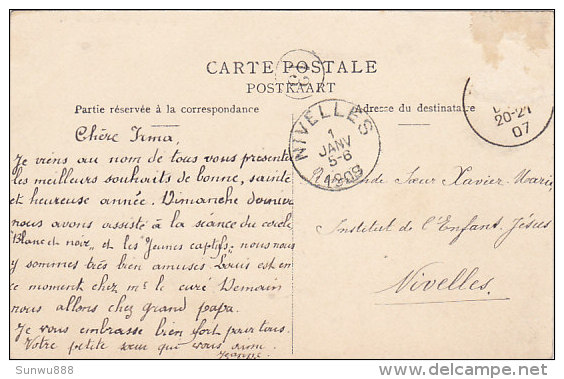 CARTE POSTALE
POSTKAART
Partie réservée à la correspondance
Adresse du destinataire
Chère Irma,
Je viens au nom de tous vous présenter
les meilleurs souhaits de bonne, sainte
et heureuse année. Dimanche dernier
nous avons assisté à la séance du cercle
"Blanc et noir", et les "Jeunes captifs" nous nous
y sommes très bien amusés Louis est en
ce moment chez mr le curé Demain
nous allons chez grand papa.
Je vous embrasse bien fort pour tous.
Votre petite sœur qui vous aime.
Jeanne.
NIVELLES
1
JANV
5-6
20-21
07
Sœur Xavier Marie
Institut de l'Enfant Jésus
Nivelles.
Sunwu888
delcampe.net